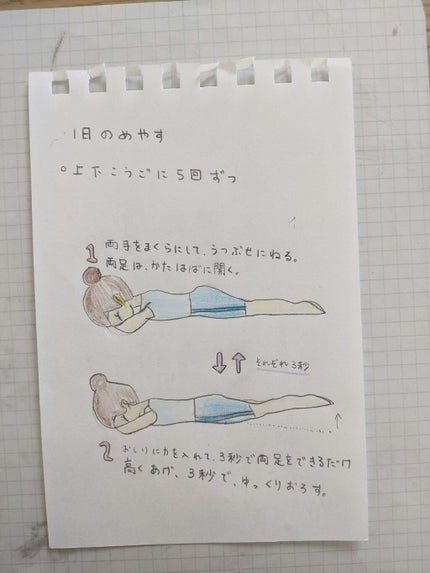 1日のめやす
○上下こうごに5回ずつ
1 両手をまくらにして、うつぶせにねる。
両足は、かたはばに開く。
それぞれ3秒
2 おしりに力を入れて、3秒で両足をできるだけ
高くあげ、3秒で、ゆっくりおろす。